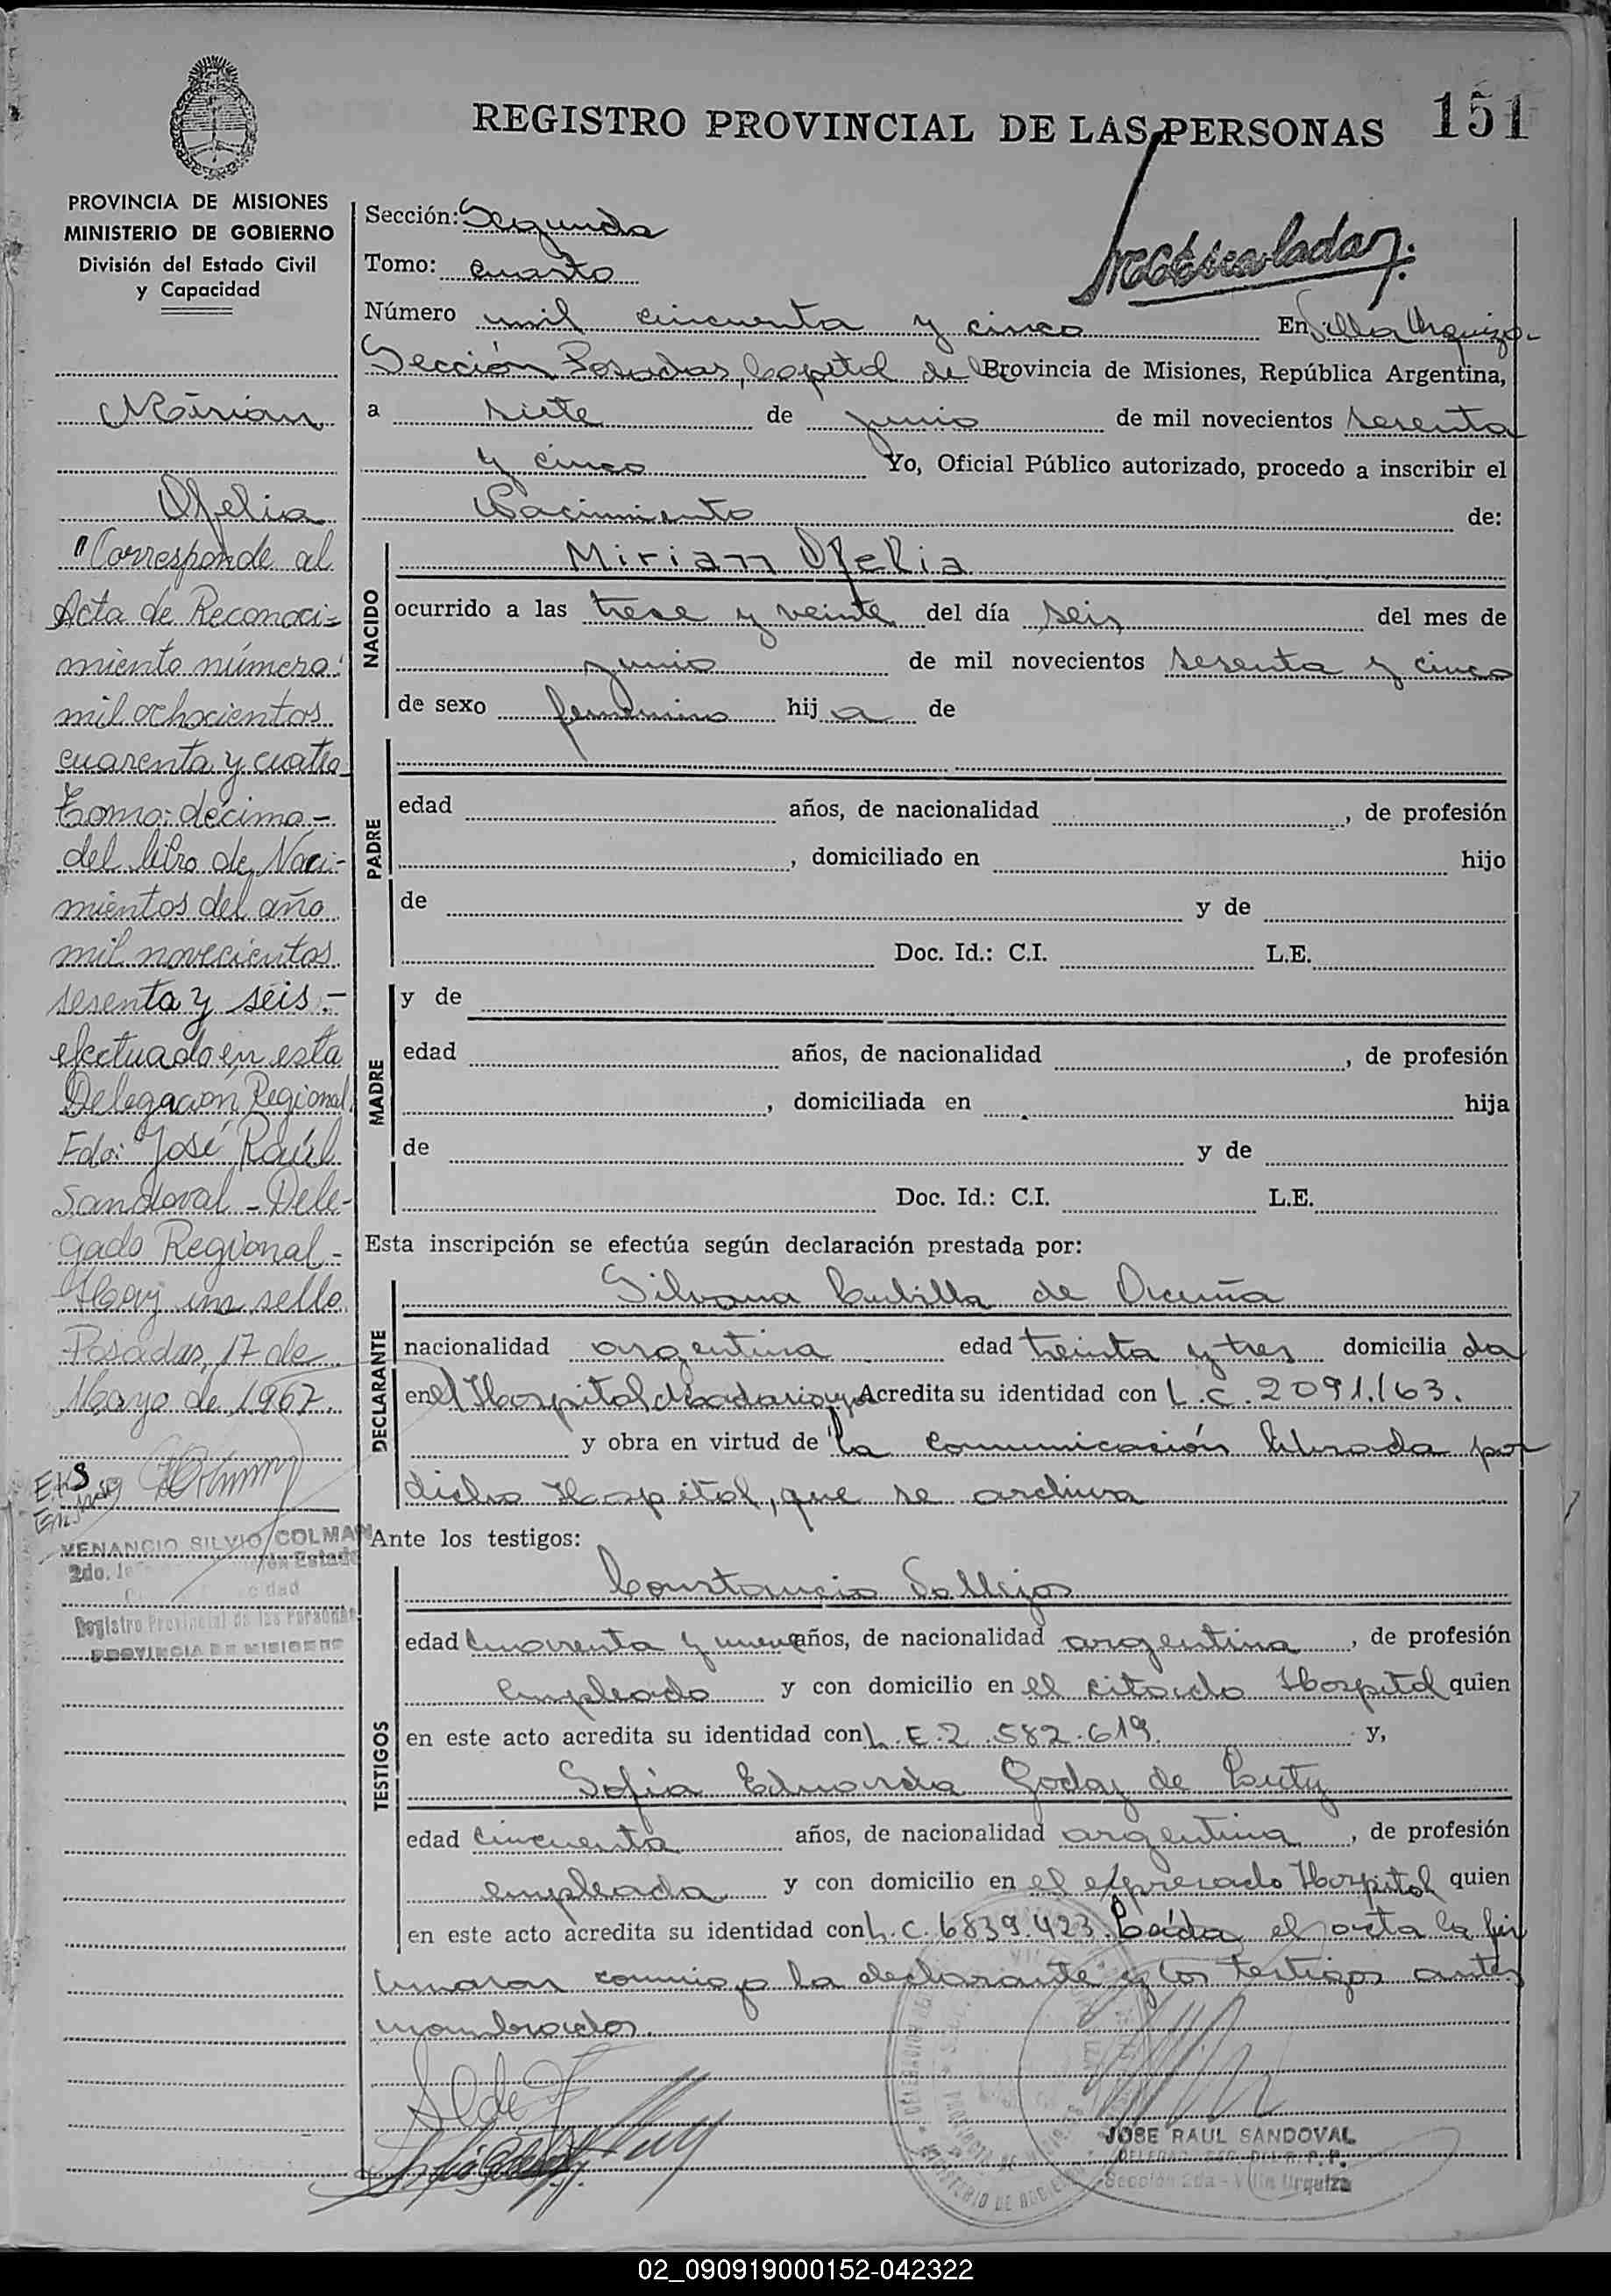 REGISTRO PROVINCIAL DE LAS PERSONAS 151
PROVINCIA DE MISIONES
MINISTERIO DE GOBIERNO
División del Estado Civil
y Capacidad
Mirian
Ofelia
"Corresponde al
Acta de Reconoci-
miento número:
mil ochocientos
cuarenta y cuatro
Tomo: décimo-
del libro de Naci-
mientos del año
mil novecientos
sesenta y seis.-
efectuado en esta
Delegación Regional.
Fdo: José Raúl
Sandoval - Dele-
gado Regional-
Hay un sello
Posadas, 17 de
Mayo de 1967.
VENANCIO SILVIO COLMAN
2do. Estado
Registro Provincial de las Personas
PROVINCIA DE MISIONES
Sección: Segunda
Tomo: cuarto
Número mil cincuenta y cinco En Villa Urquiza-
Sección Posadas, Capital de la Provincia de Misiones, República Argentina,
a siete de junio de mil novecientos sesenta
y cinco Yo, Oficial Público autorizado, procedo a inscribir el
Nacimiento de:
NACIDO
Mirian Ofelia
ocurrido a las trece y veinte del día seis del mes de
junio de mil novecientos sesenta y cinco
de sexo femenino hija de
PADRE
edad años, de nacionalidad , de profesión
, domiciliado en hijo
de y de
Doc. Id.: C.I. L.E.
MADRE
y de
edad años, de nacionalidad , de profesión
, domiciliada en hija
de y de
Doc. Id.: C.I. L.E.
Esta inscripción se efectúa según declaración prestada por:
DECLARANTE
Silvana Cubilla de Ocuña
nacionalidad argentina edad treinta y tres domicilia da
en el Hospital Madariaga Acredita su identidad con L.C. 2091.163.
y obra en virtud de la comunicación librada por
dicho Hospital, que se archiva
Ante los testigos:
TESTIGOS
Constancio Vallejos
edad cuarenta y nueve años, de nacionalidad argentina , de profesión
empleado y con domicilio en el citado Hospital quien
en este acto acredita su identidad con L.E. 2.582.619. y,
Sofía Eduarda Godoy de Cuty
edad cincuenta años, de nacionalidad argentina , de profesión
empleada y con domicilio en el expresado Hospital quien
en este acto acredita su identidad con L.C. 6839.423. Leída el acta la fir
maron conmigo la declarante y los testigos antes
nombrados.
JOSE RAUL SANDOVAL
Sección 2da - Villa Urquiza
02_090919000152-042322